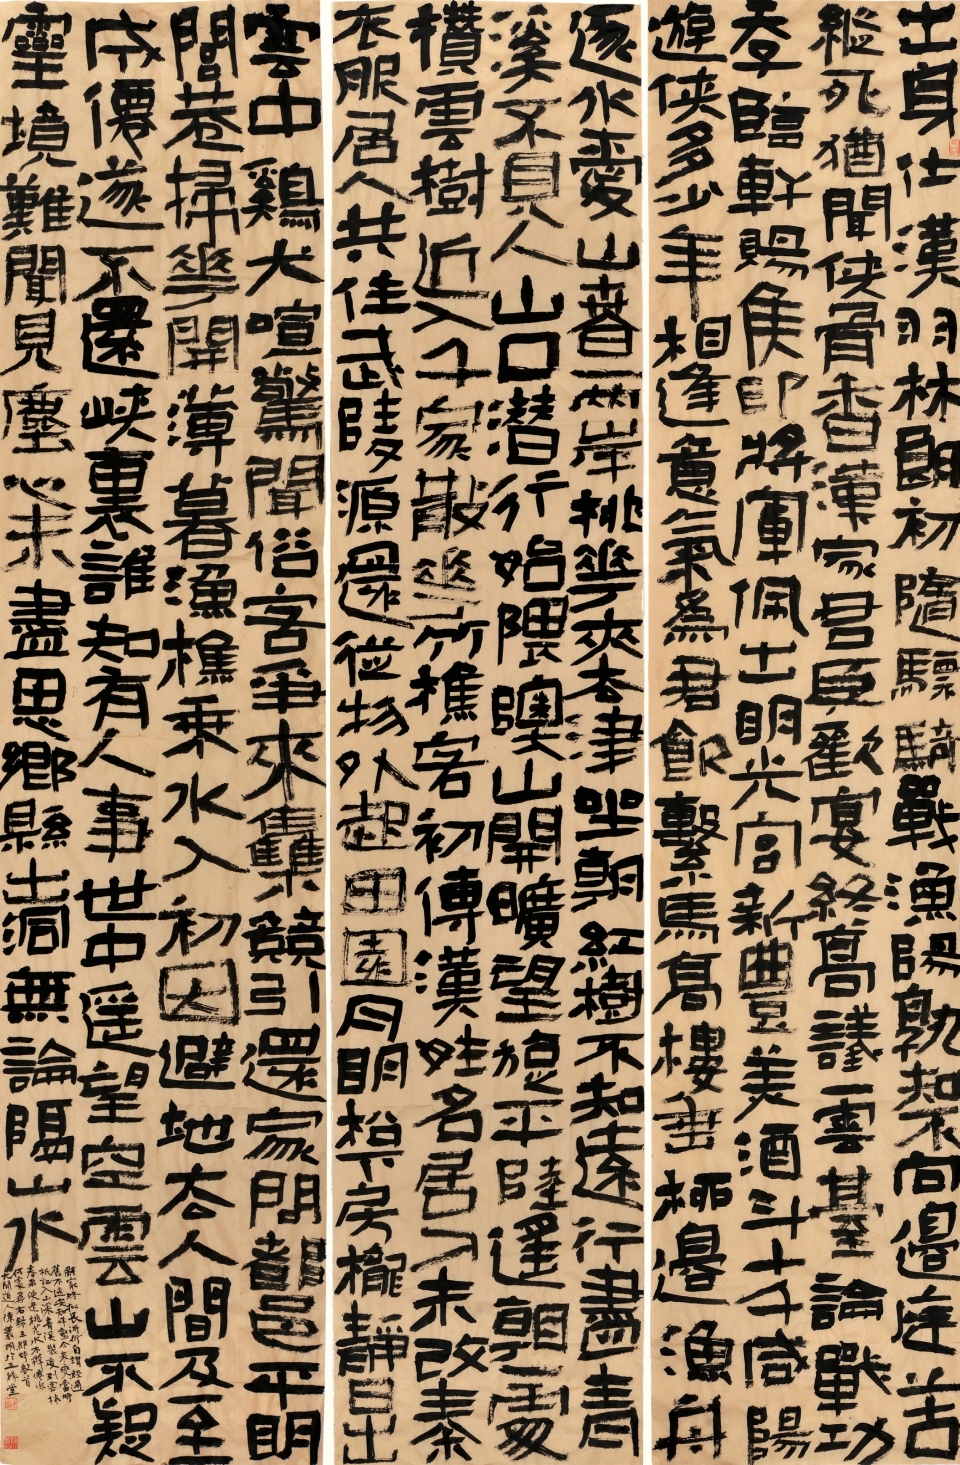 出身仕漢羽林郎初隨驃騎戰漁陽孰知不向邊庭苦
縱死猶聞俠骨香漢家君臣歡宴終高議雲臺論戰功
天子臨軒賜侯印將軍佩出明光宮新豐美酒斗十千咸陽
遊俠多少年相逢意氣為君飲繫馬高樓垂柳邊漁舟
逐水愛山春兩岸桃花夾去津坐看紅樹不知遠行盡青
溪不見人山口潛行始隈隩山開曠望旋平陸遙看一處
攢雲樹近入千家散花竹樵客初傳漢姓名居人未改秦
衣服居人共住武陵源還從物外起田園月明松下房櫳靜日出
雲中雞犬喧驚聞俗客爭來集競引還家問都邑平明
閭巷掃花開薄暮漁樵乘水入初因避地去人間及至
成僊遂不還峽裏誰知有人事世中遙望空雲山不疑
靈境難聞見塵心未盡思鄉縣出洞無論隔山水
辭家終擬長游衍自謂經過
舊不迷安知峰壑今來變當時
秖記入山深青溪幾度到雲林
春來便是桃花水不辨僊源
何處尋右錄王維詩數首
道人陳